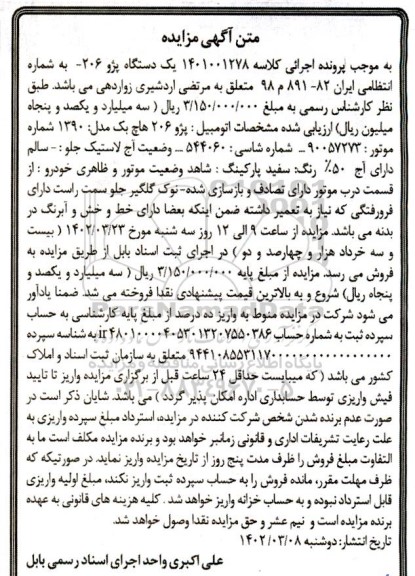 متن آگهی مزایده
به موجب پرونده اجرائی کلاسه ۱۴۰۱۰۰۱۲۷۸ یک دستگاه پژو ۲۰۶- به شماره
انتظامی ایران ۸۲- ۸۹۱ م ۹۸ متعلق به مرتضی اردشیری زواردهی می باشد. طبق
نظر کارشناس رسمی به مبلغ ۳/۱۵۰/۰۰۰/۰۰۰ ریال ( سه میلیارد و یکصد و پنجاه
میلیون ریال) ارزیابی شده مشخصات اتومبیل : پژو ۲۰۶ هاچ بک مدل: ۱۳۹۰ شماره
موتور : ۹۰۰۵۷۲۷۳ ... شماره شاسی : ۵۴۴۰۶۰ ... وضعیت آج لاستیک جلو : - سالم
دارای آج ۵۰٪ رنگ: سفید پارکینگ : شاهد وضعیت موتور و ظاهری خودرو : از
قسمت درب موتور دارای تصادف و بازسازی شده- نوک گلگیر جلو سمت راست دارای
فرورفتگی که نیاز به تعمیر داشته ضمن اینکه بعضا دارای خط و خش و آبرنگ در
بدنه می باشد. مزایده از ساعت ۹ الی ۱۲ روز سه شنبه مورخ ۱۴۰۲/۰۳/۲۳ ( بیست
و سه خرداد هزار و چهارصد و دو ) در اجرای ثبت اسناد بابل از طریق مزایده به
فروش می رسد. مزایده از مبلغ پایه ۳/۱۵۰/۰۰۰/۰۰۰ ریال ( سه میلیارد و یکصد و
پنجاه ریال) شروع و به بالاترین قیمت پیشنهادی نقدا فروخته می شد. ضمنا یادآور
می شود شرکت در مزایده منوط به واریز ده درصد از مبلغ پایه کارشناسی به حساب
سپرده ثبت به شماره حساب ir۴۸۰۱۰۰۰۰۴۰۵۳۰۱۳۲۰۷۵۵۰۳۸۶ به شناسه سپرده
متعلق به سازمان ثبت اسناد و املاک
کشور می باشد ( که میبایست حداقل ۲۴ ساعت قبل از برگزاری مزایده واریز تا تایید
فیش واریزی توسط حسابداری اداره امکان پذیر گردد ) می باشد. شایان ذکر است در
صورت عدم برنده شدن شخص شرکت کننده در مزایده، استرداد مبلغ سپرده واریزی به
علت رعایت تشریفات اداری و قانونی زمانبر خواهد بود و برنده مزایده مکلف است ما به
التفاوت مبلغ فروش را ظرف مدت پنج روز از تاریخ مزایده واریز نماید. در صورتیکه که
ظرف مهلت مقرر، مانده فروش را به حساب سپرده ثبت واریز نکند، مبلغ اولیه واریزی
قابل استرداد نبوده و به حساب خزانه واریز خواهد شد . کلیه هزینه های قانونی به عهده
برنده مزایده است و نیم عشر و حق مزایده نقدا وصول خواهد شد.
تاریخ انتشار: دوشنبه ۱۴۰۲/۰۳/۰۸
علی اکبری واحد اجرای اسناد رسمی بابل